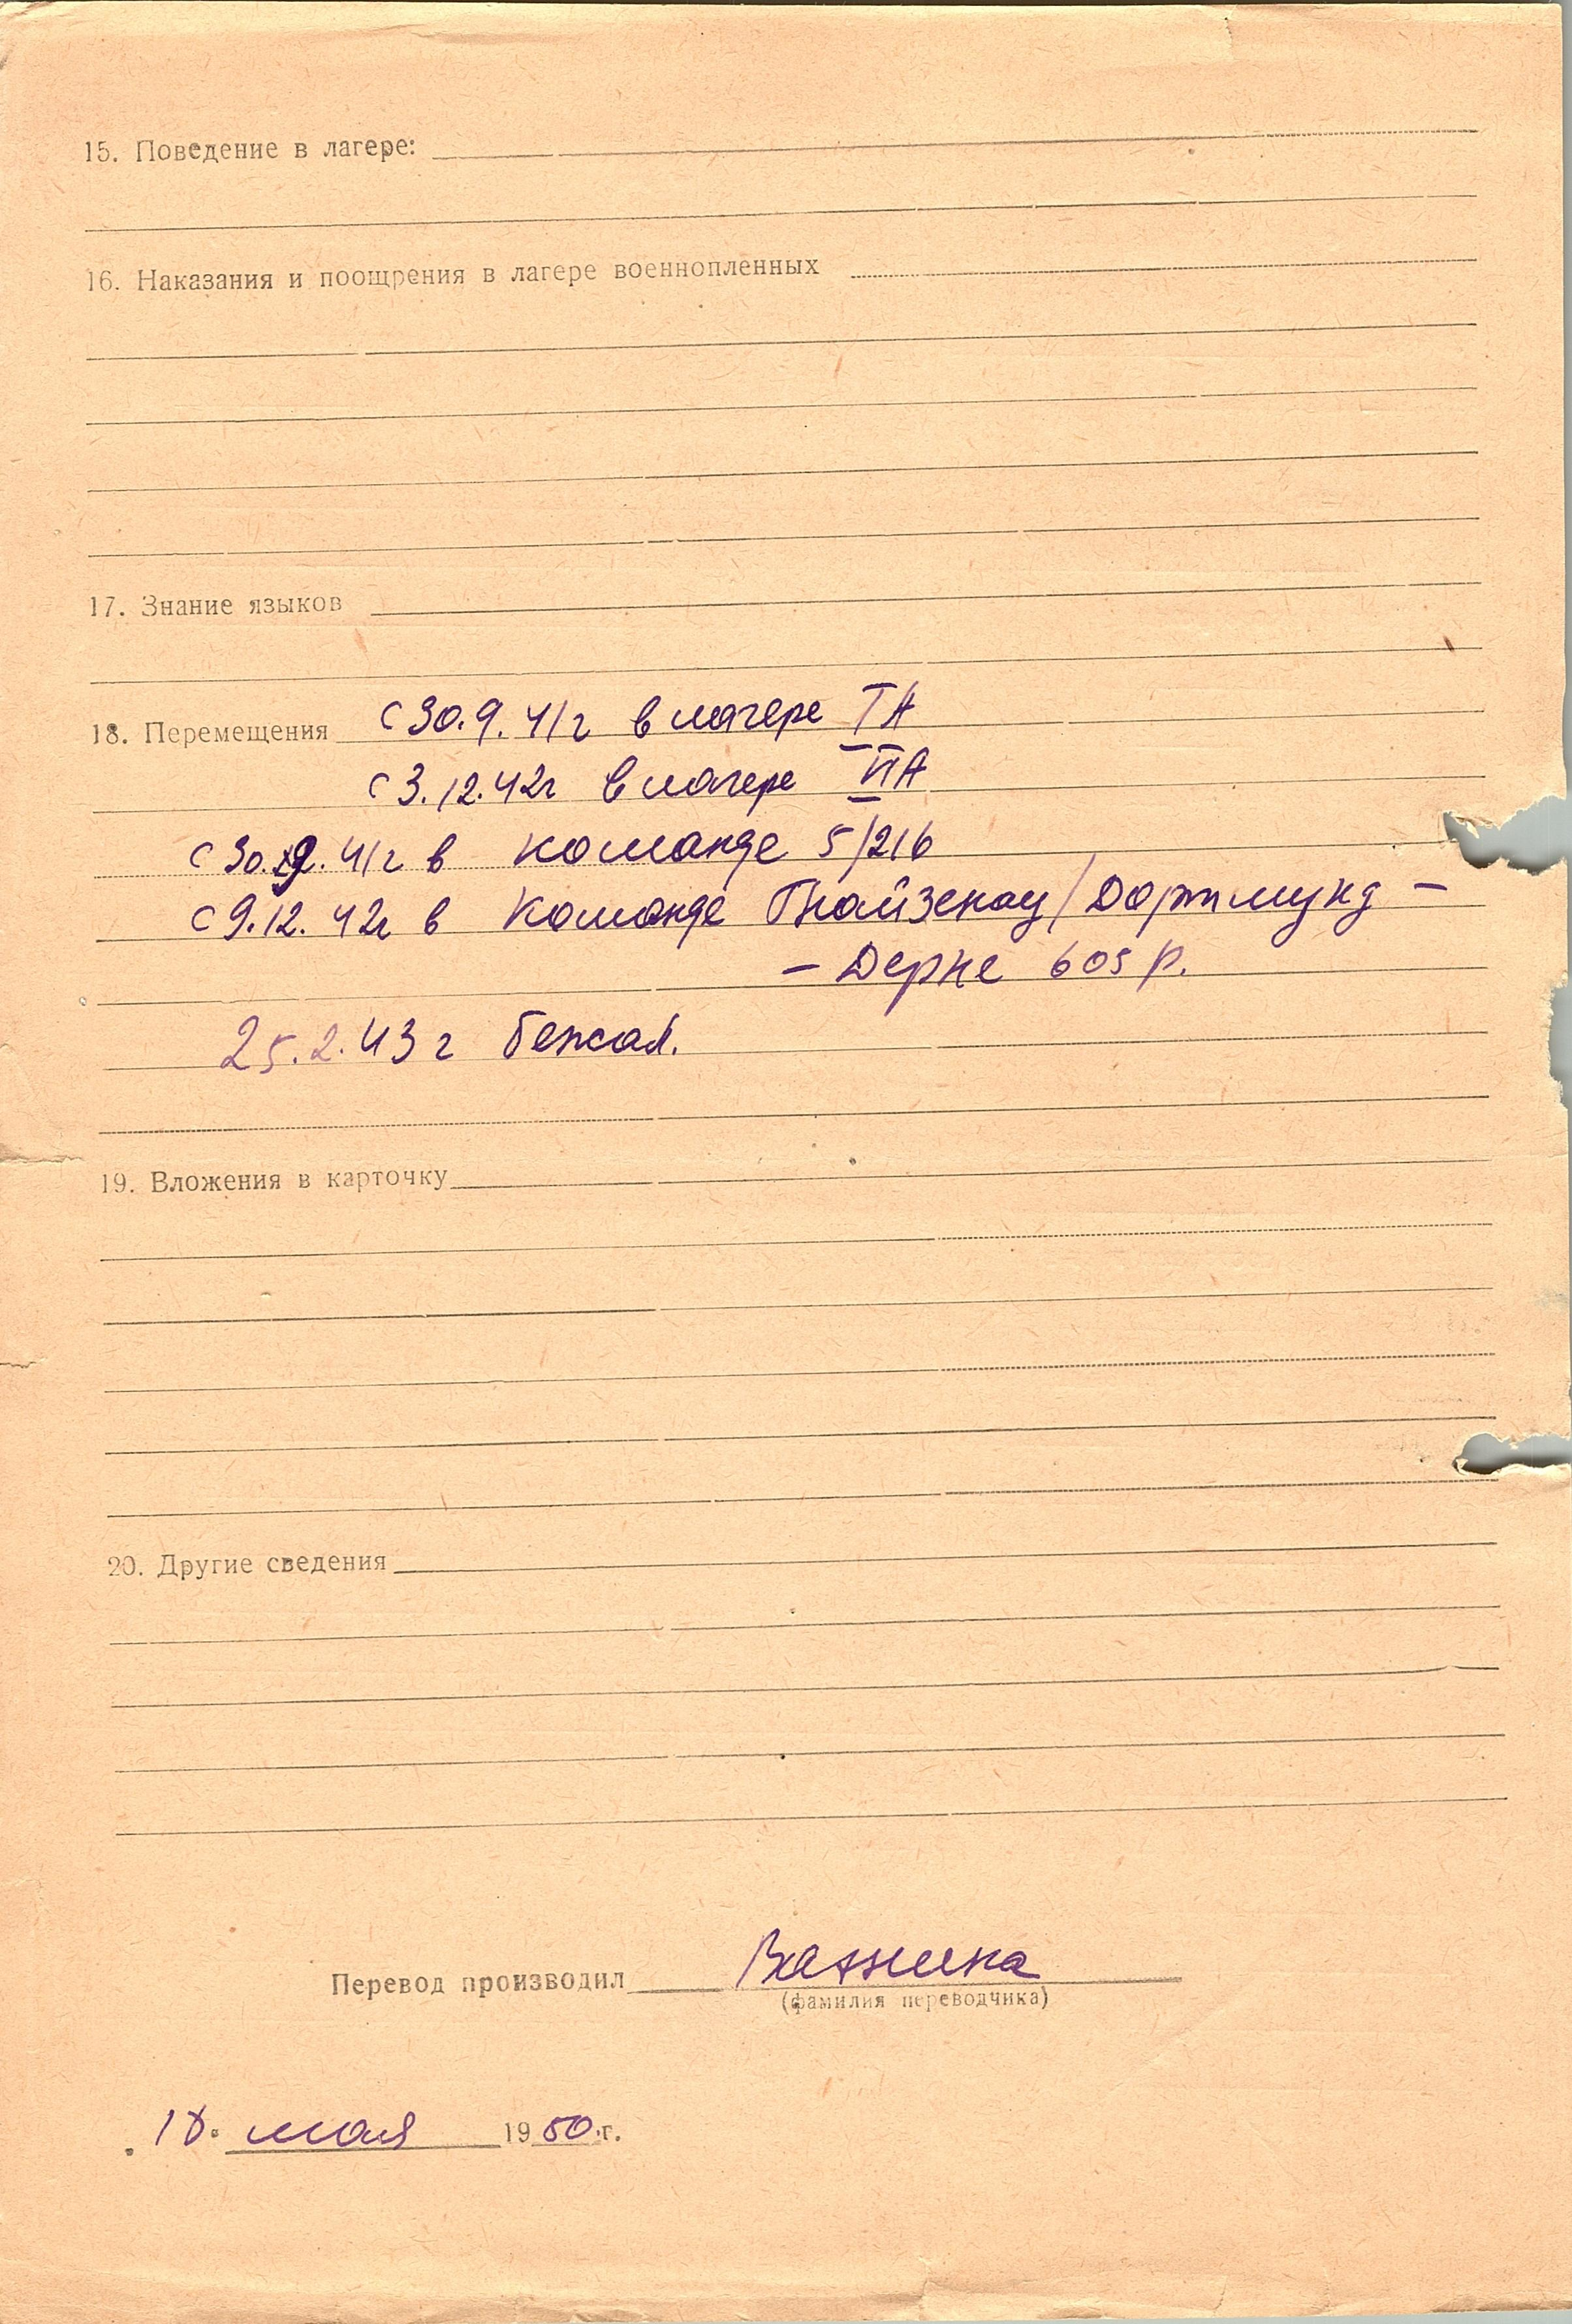 15. Поведение в лагере:
16. Наказания и поощрения в лагере военнопленных
17. Знание языков
18. Перемещения с 30.9.41г в лагере IА
с 3.12.42г в лагере VIА
с 30.9.41г в команде 5/216
с 9.12.42г в команде Гнайзенау/Дортмунд-
- Дерне 605 р.
25.2.43г бежал.
19. Вложения в карточку
20. Другие сведения
Перевод производил
(фамилия переводчика)
мая 1950 г.